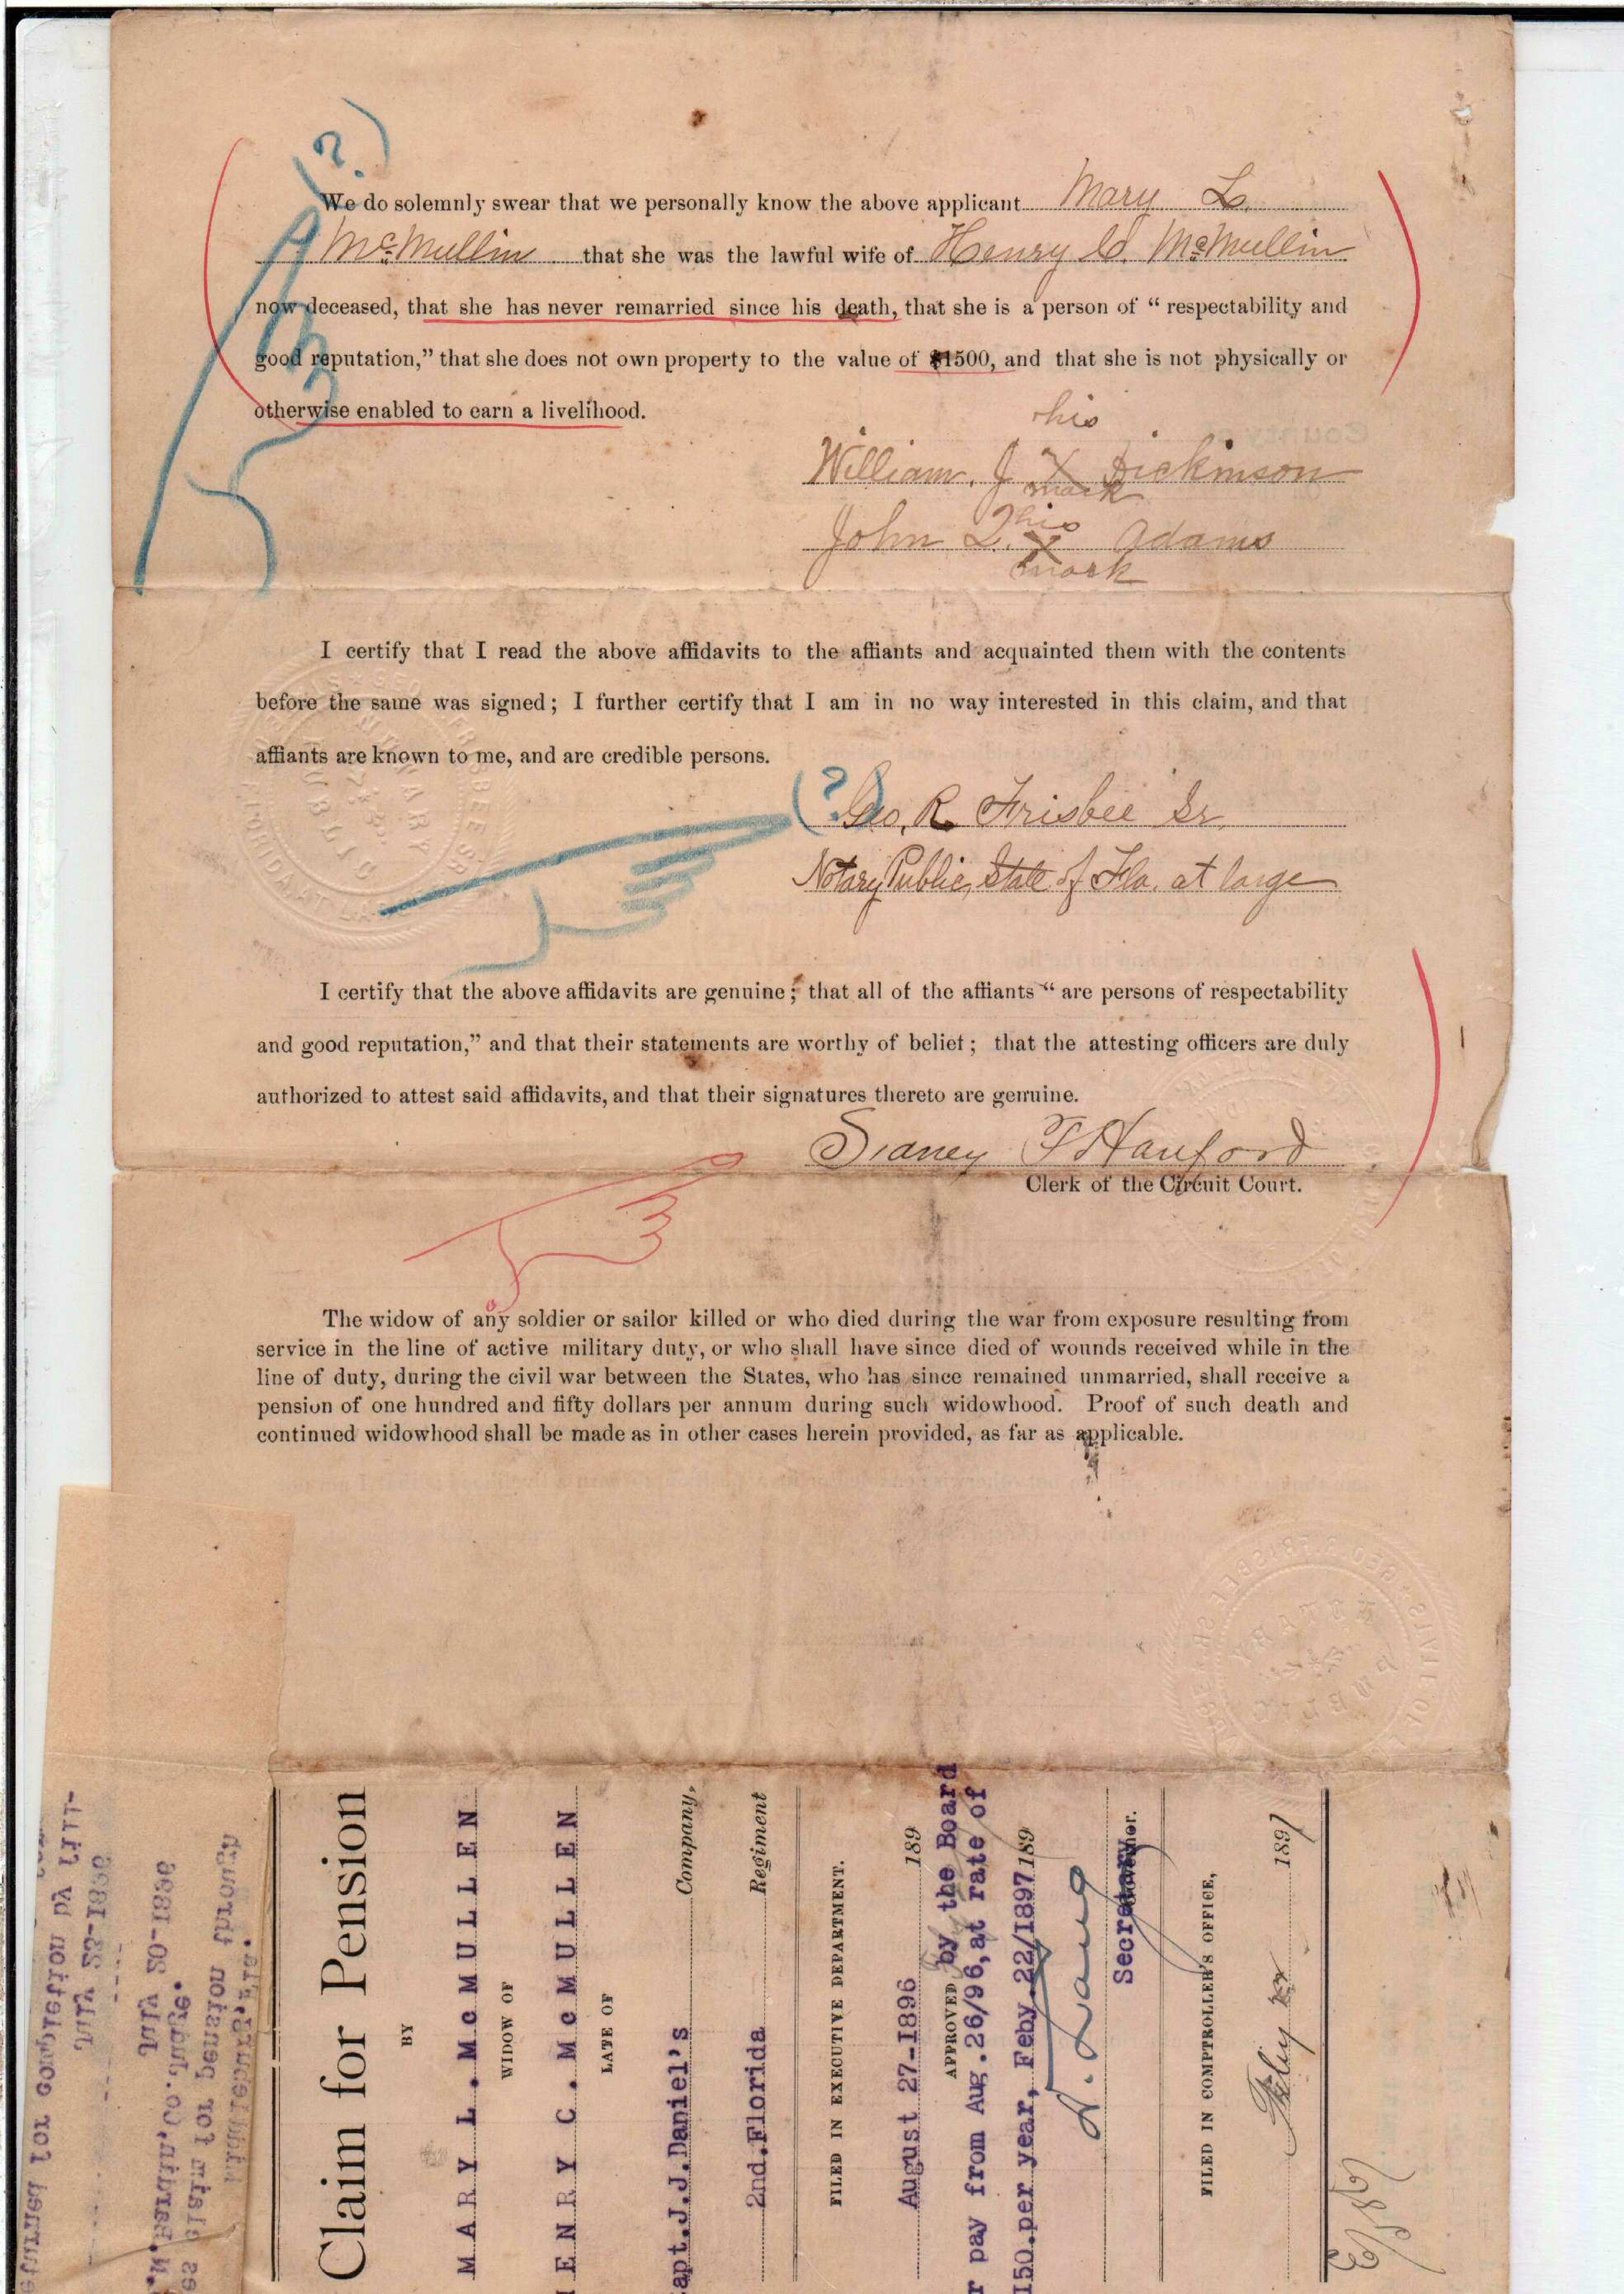 (?)
We do solemnly swear that we personally know the above applicant Mary L.
McMullin that she was the lawful wife of Henry C. McMullin
now deceased, that she has never remarried since his death, that she is a person of “ respectability and
good reputation,” that she does not own property to the value of $1500, and that she is not physically or
otherwise enabled to earn a livelihood.
his
William. J X Dickinson
mark
his
John Q. X Adams
mark
I certify that I read the above affidavits to the affiants and acquainted them with the contents
before the same was signed; I further certify that I am in no way interested in this claim, and that
affiants are known to me, and are credible persons.
(?) Geo. R. Frisbee Sr.
Notary Public, State of Fla. at large
I certify that the above affidavits are genuine; that all of the affiants “ are persons of respectability
and good reputation,” and that their statements are worthy of belief; that the attesting officers are duly
authorized to attest said affidavits, and that their signatures thereto are genuine.
Sidney F Hanford
Clerk of the Circuit Court.
The widow of any soldier or sailor killed or who died during the war from exposure resulting from
service in the line of active military duty, or who shall have since died of wounds received while in the
line of duty, during the civil war between the States, who has since remained unmarried, shall receive a
pension of one hundred and fifty dollars per annum during such widowhood. Proof of such death and
continued widowhood shall be made as in other cases herein provided, as far as applicable.
Claim for Pension
BY
MARY L. McMULLEN
WIDOW OF
HENRY C. McMULLEN
LATE OF
apt. J.J. Daniel's Company,
2nd. Florida Regiment
FILED IN EXECUTIVE DEPARTMENT.
August 27-1896 189
APPROVED by the Board
r pay from Aug. 26/96, at rate of
150. per year, Feby. 22/1897 189
D. Lang
Secretary
Governor.
FILED IN COMPTROLLER'S OFFICE,
Feby 1897
eturned for completion by Fitt-
July 23-1896
July 20-1896
.N. Bardin, Co. Judge.
es claim for pension through
Middleburg, Fla.